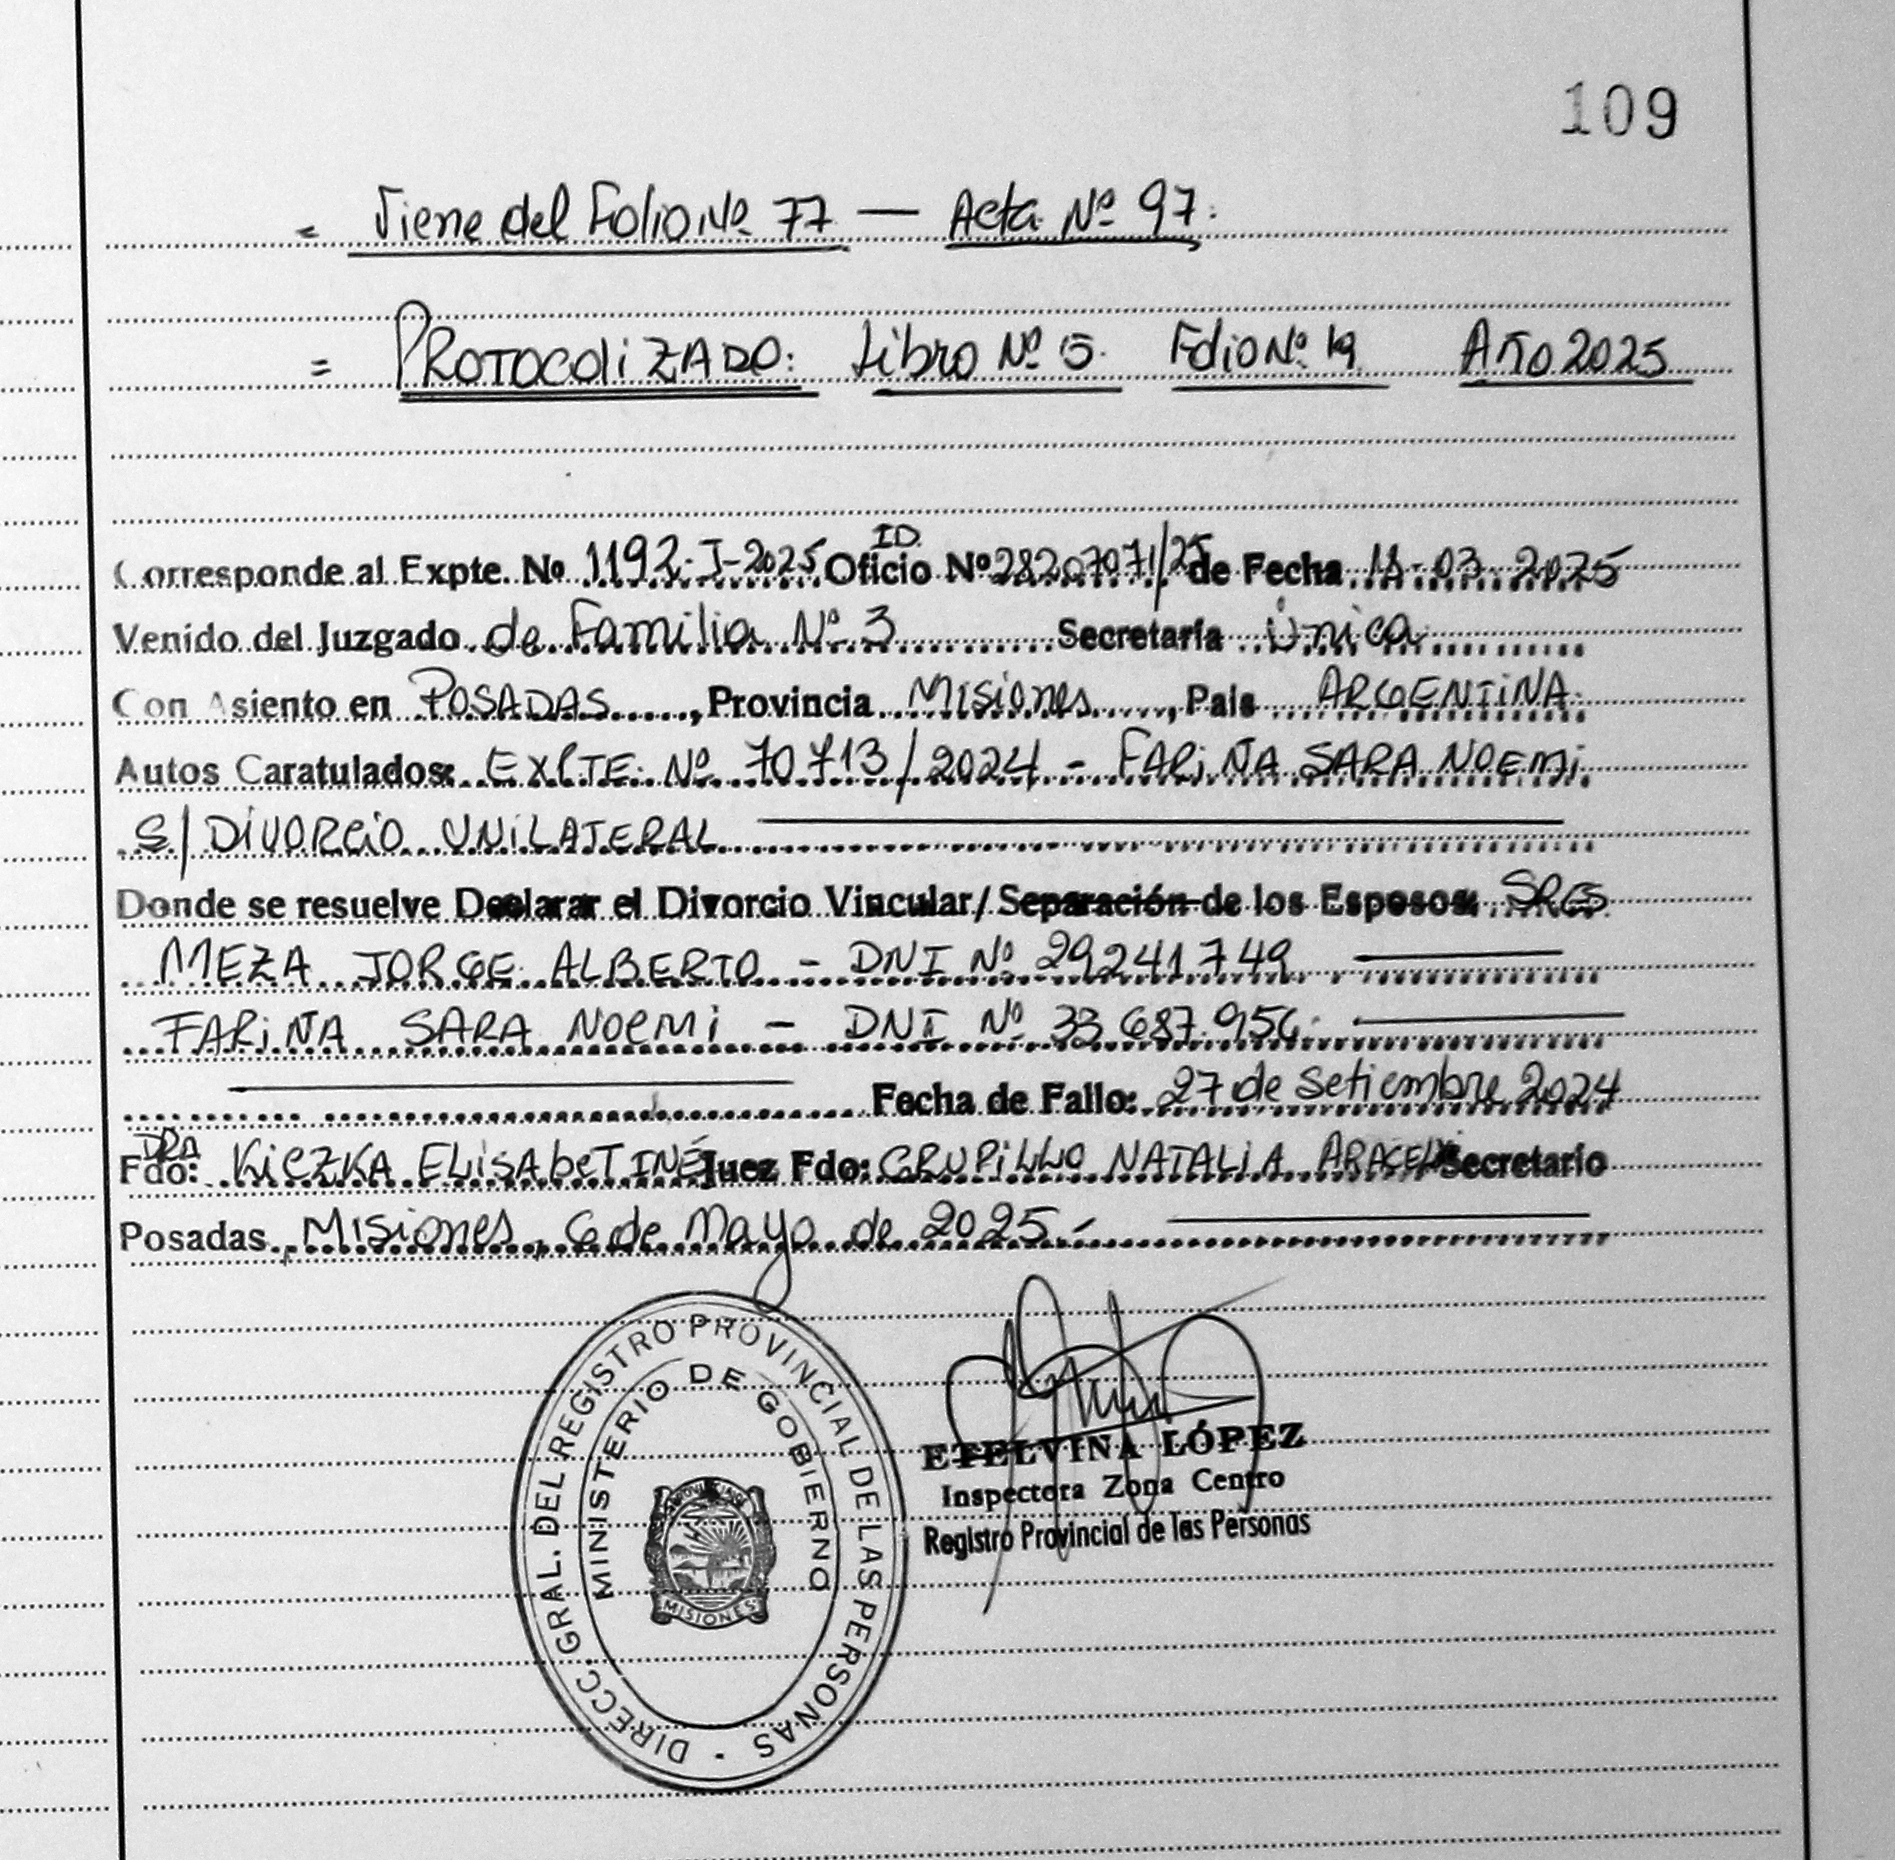 109
= Viene del Folio Nº 77 — Acta Nº 97.
= PROTOCOLIZADO: Libro Nº 5. Folio Nº 19 Año 2025
ID.
Corresponde al Expte. Nº 1192-I-2025 Oficio Nº 28207071/25 de Fecha 11-03-2025
Venido del Juzgado de Familia Nº 3 Secretaría Única
Con Asiento en POSADAS, Provincia Misiones, País ARGENTINA.
Autos Caratulados: EXPTE. Nº 70713/2024 - FARIÑA SARA NOEMI
S/ DIVORCIO UNILATERAL
Donde se resuelve Declarar el Divorcio Vincular/ Separación de los Esposos: SRES
MEZA JORGE ALBERTO - DNI Nº 29241749
FARIÑA SARA NOEMI - DNI Nº 33.687.956.
Fecha de Fallo: 27 de Setiembre 2024
DRA
Fdo: KICZKA ELISABET INÉS Juez Fdo: GRUPILLO NATALIA ARACELI Secretario
Posadas, Misiones, 6 de Mayo de 2025.-
DIRECC. GRAL. DEL REGISTRO PROVINCIAL DE LAS PERSONAS
MINISTERIO DE GOBIERNO
MISIONES
ETELVINA LÓPEZ
Inspectora Zona Centro
Registro Provincial de las Personas